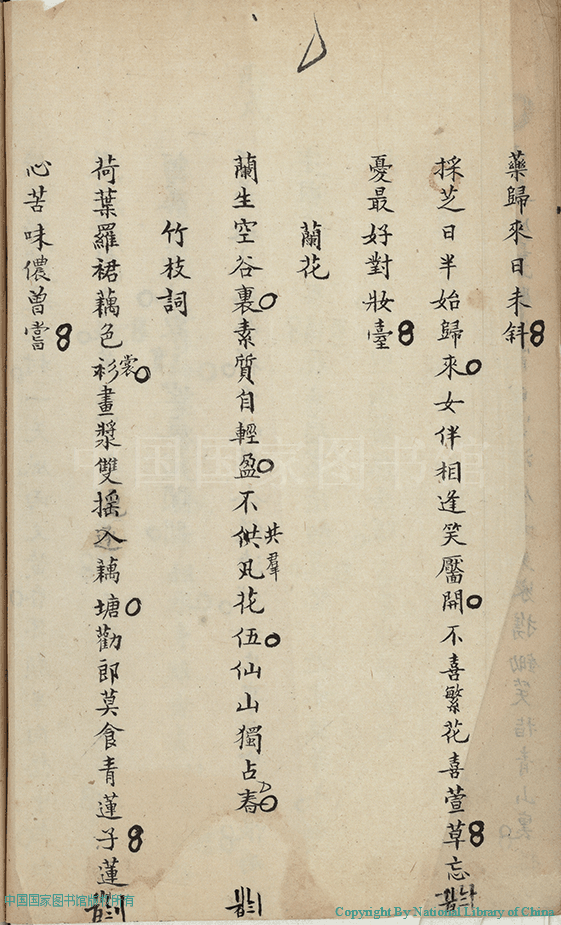 藥歸來日未斜
採芝日半始歸來女伴相逢笑靨開不喜繁花喜萱草忘
憂最好對妝臺
蘭花
蘭生空谷裏素質自輕盈不供凡花伍仙山獨占春
共羣
竹枝詞
荷葉羅裙藕色衫畫漿雙搖入藕塘勸郎莫食青蓮子蓮
裳
心苦味儂曾嘗
中国国家图书馆
中国国家图书馆版权所有
Copyright By National Library of China